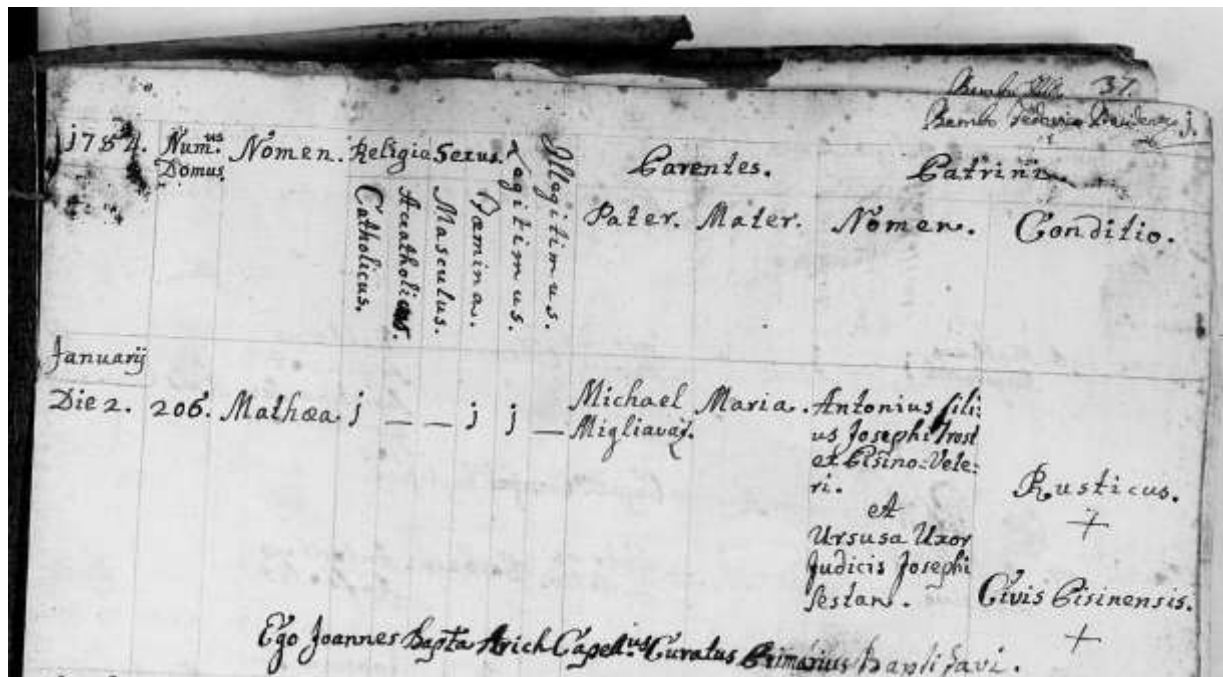 37.
Bembo Federico j.
1784. Num.us Nomen. Religio Sexus. Legitimus. Illegitimus. Parentes. Patrini.
Domus
Catholicus. Accatholicus. Masculus. Fæmina. Pater. Mater. Nomen. Conditio.
Januarij
Die 2. 206. Mathæa j — — j j — Michael Maria. Antonius fili:
Migliavaz. us Josephi Trost
et Pisino=Vete=
ri. Rusticus.
et +
Ursusa Uxor
Judicis Josephi
Sestan. Civis Pisinensis.
+
Ego Joannes Bapta Arich Capell.us Curatus Primarius baptisavi.